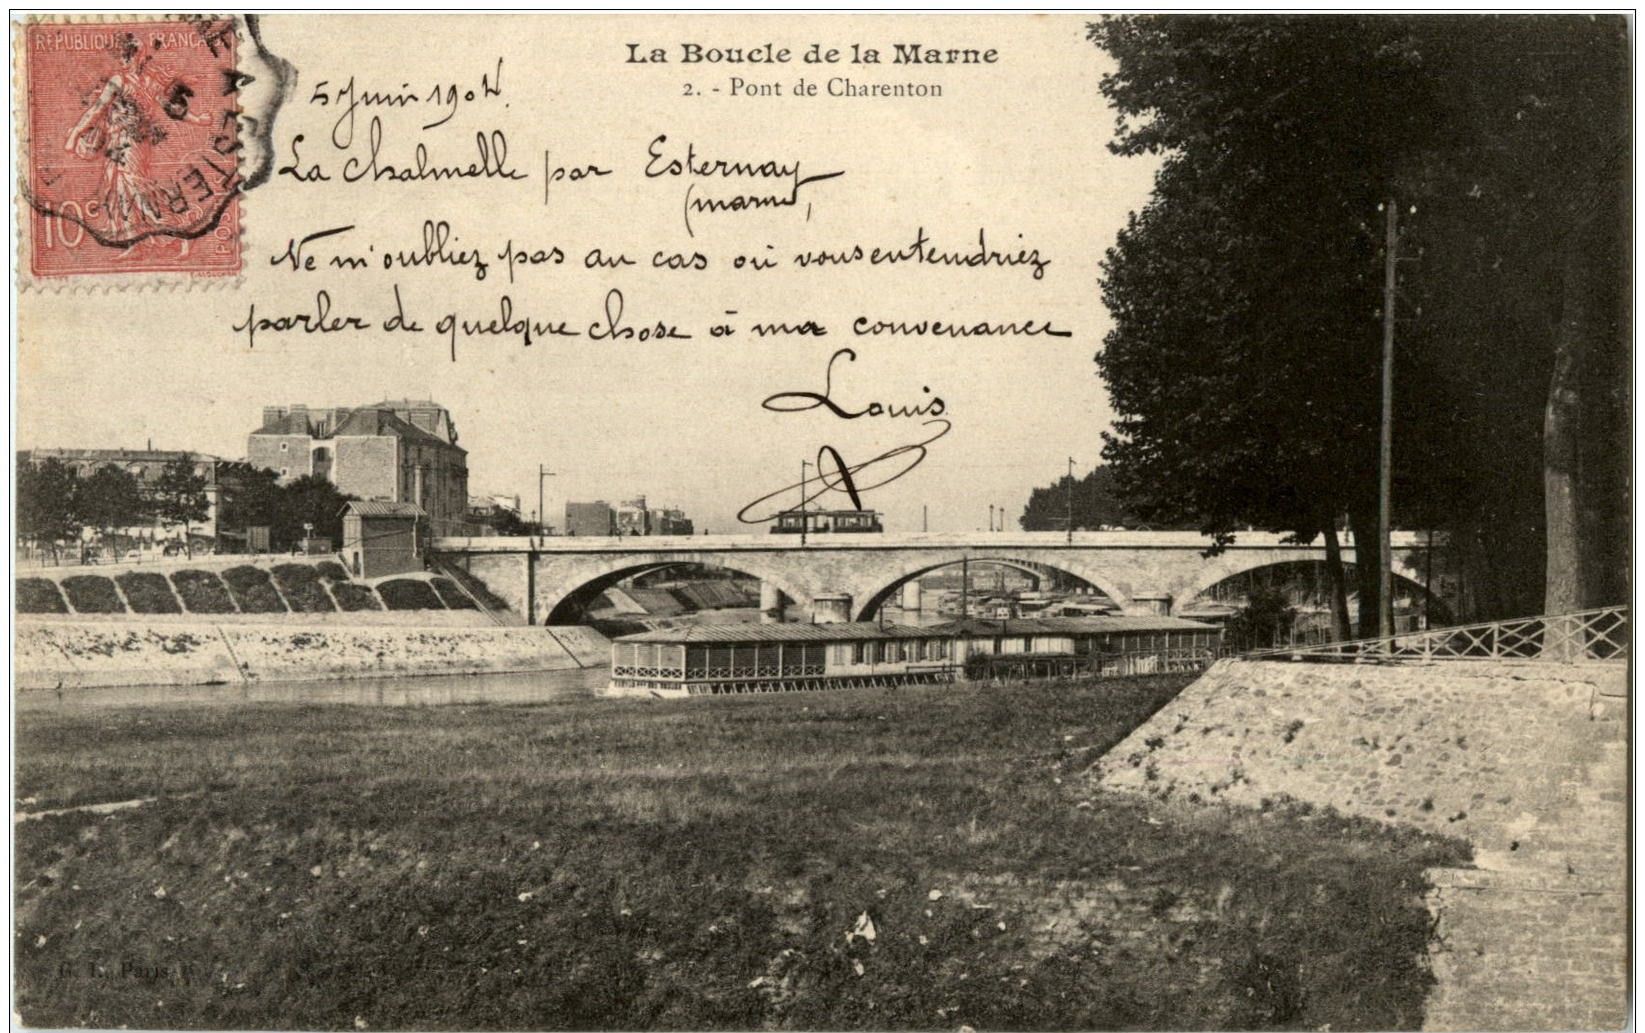 La Boucle de la Marne
2. - Pont de Charenton
REPUBLIQUE FRANCAISE
10c
POSTES
5 Juin 1904
La Chalmelle par Esternay
(marne)
Ne m'oubliez pas au cas où vous entendriez
parler de quelque chose à ma convenance
Louis
G. I. Paris